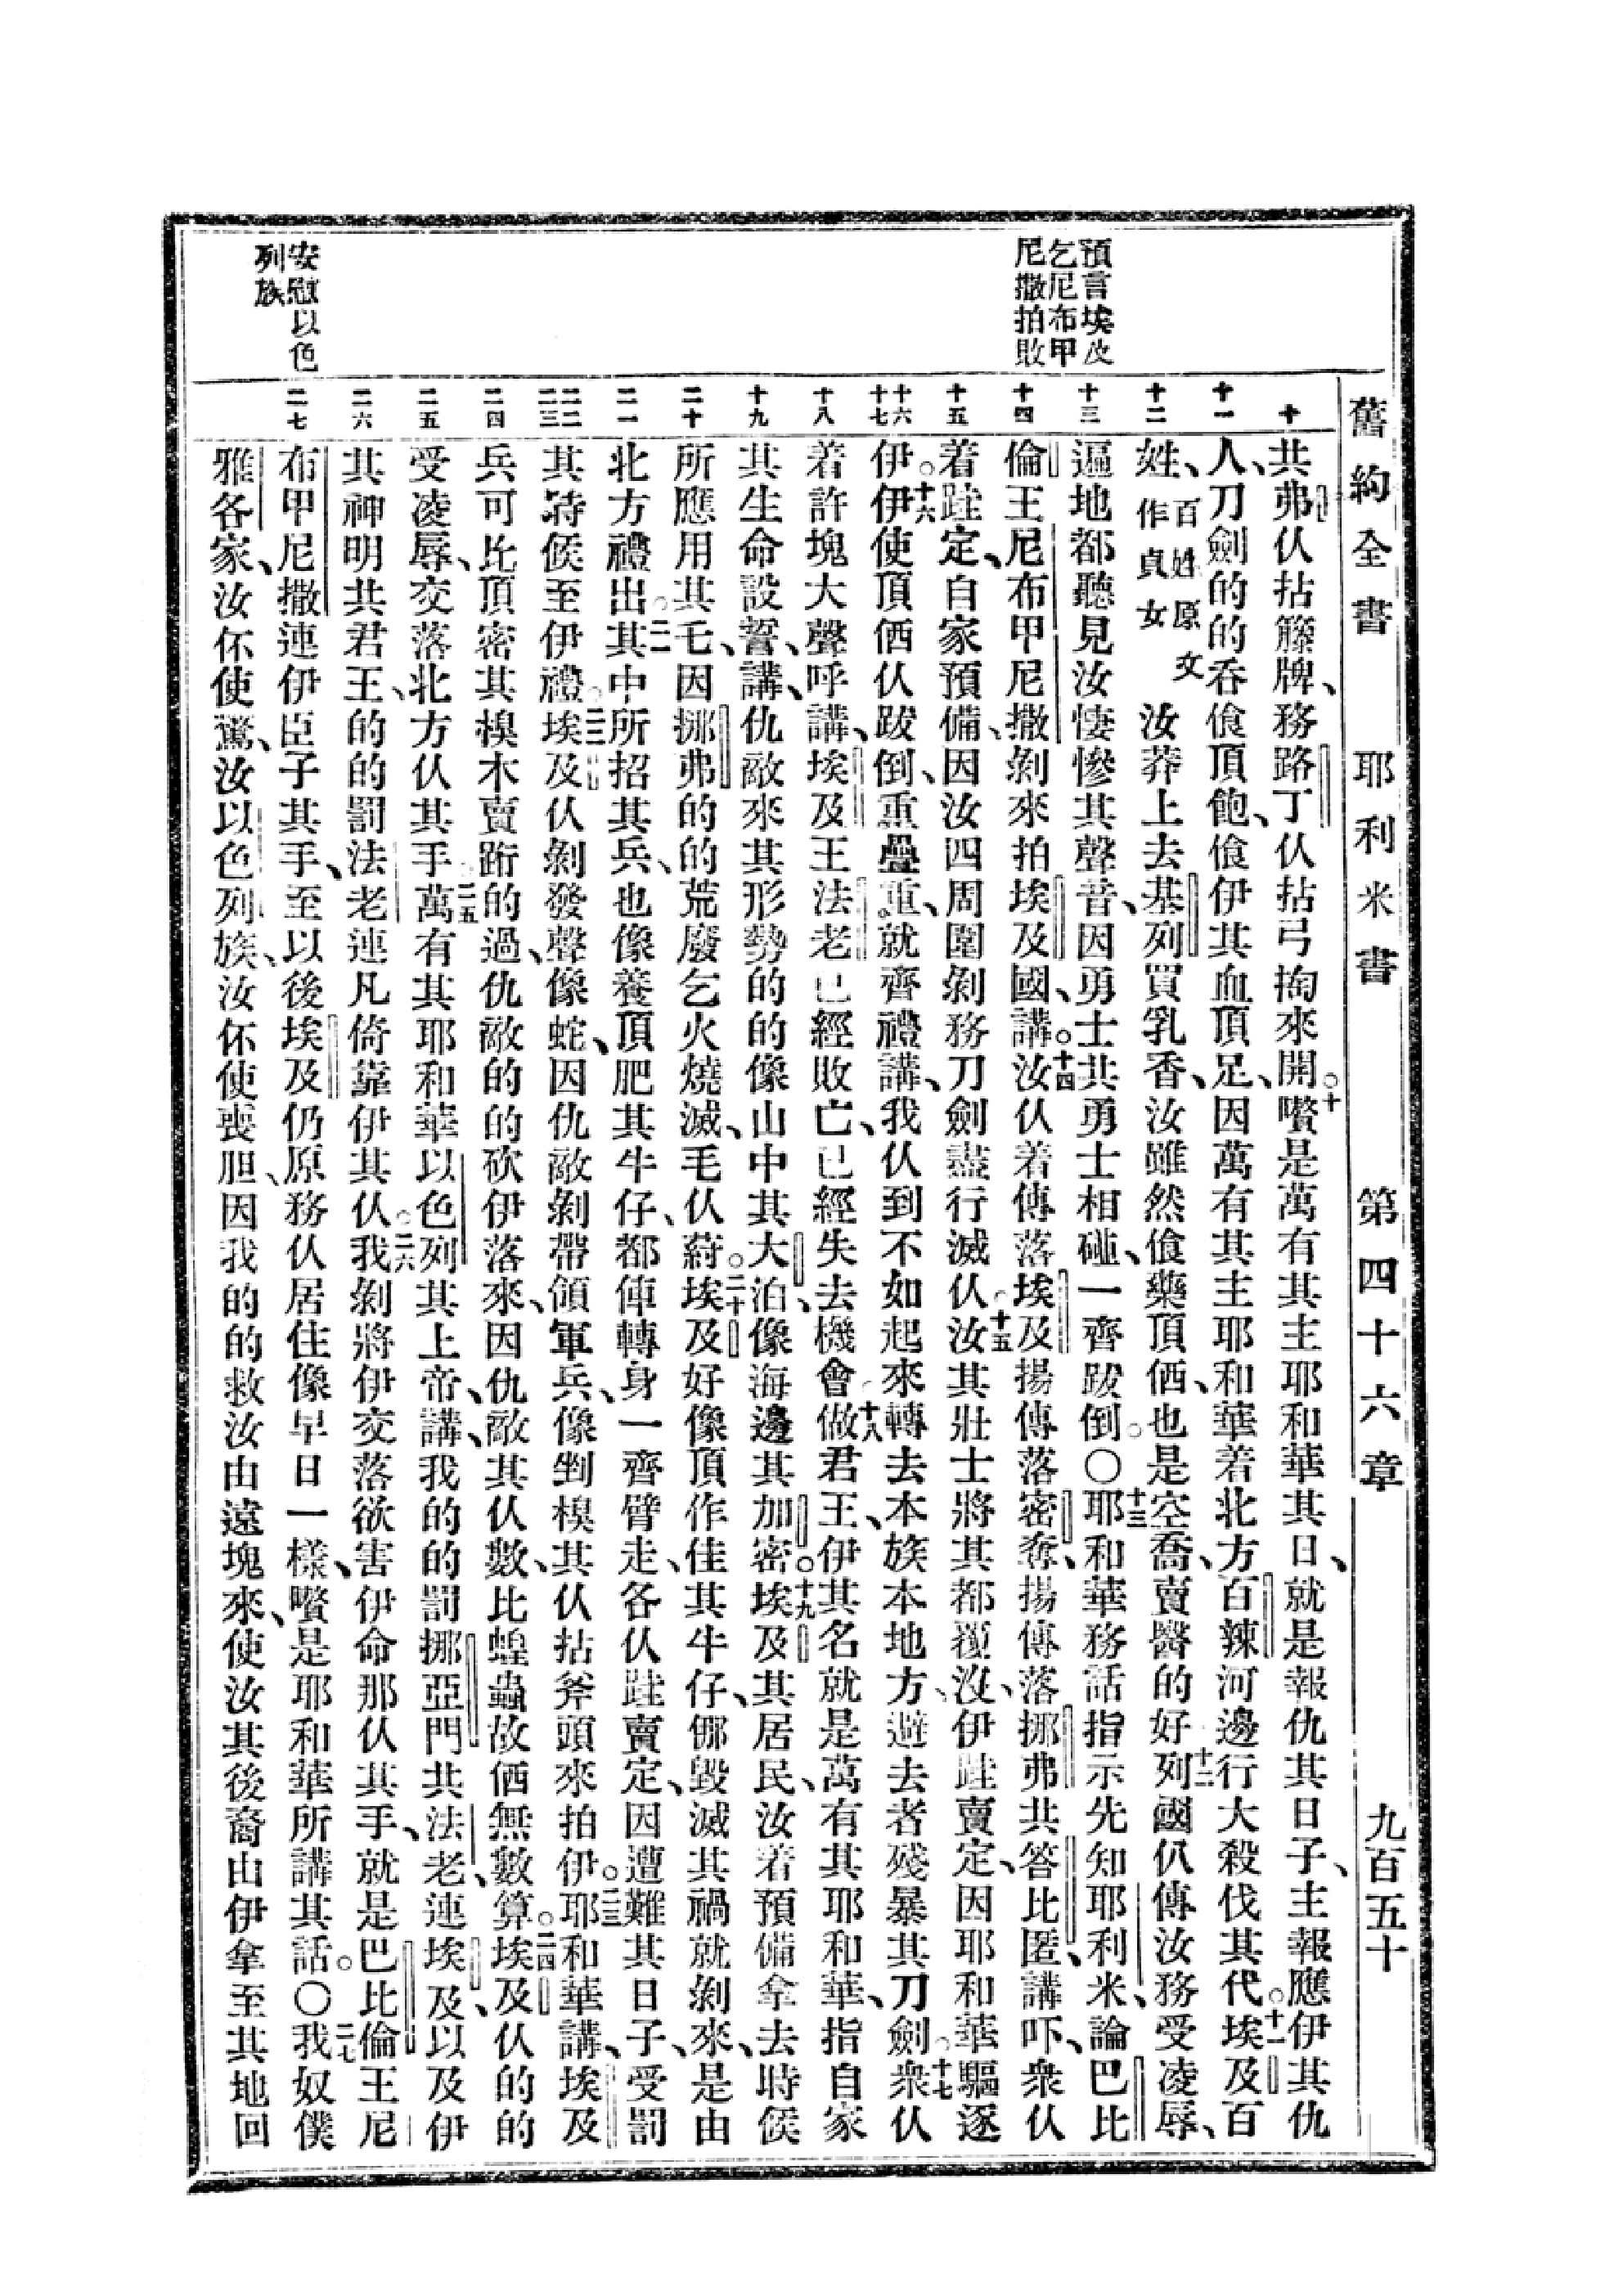 舊約全書 耶利米書 第四十六章 九百五十
預言埃及
乞尼布甲
尼撒拍敗
安慰以色
列族
十 十一 十二 十三 十四 十五 十六 十七 十八 十九 二十 二一 二二 二三 二四 二五 二六 二七
共弗仈拈籐牌、務路丁仈拈弓掏來開。十嚽是萬有其主耶和華其日、就是報仇其日子、主報應伊其仇
人、刀劍的的呑飡頂飽、飡伊其血頂足、因萬有其主耶和華着北方百辣河邊行大殺伐其代。十一埃及百
姓、百姓原文作貞女汝莽上去基列買乳香、汝雖然飡藥頂価、也是空喬、賣醫的好。十二列國仈傳汝務受凌辱、
遍地都聽見汝悽慘其聲音、因勇士共勇士相碰、一齊跋倒。○十三耶和華務話指示先知耶利米、論巴比
倫王尼布甲尼撒剝來拍埃及國、講。十四汝仈着傳落埃及揚傳落密奪、揚傳落挪弗共答比匿、講吓、衆仈
着跬定、自家預備、因汝四周圍剝務刀劍盡行滅仈。十五汝其壯士將其都覆沒、伊跬賣定、因耶和華驅逐
伊。十六伊使頂価仈跋倒、重疊重、就齊禮講、我仈到不如起來轉去本族本地方、避去者殘暴其刀劍。十七衆仈
着許塊大聲呼講、埃及王法老已經敗亡、已經失去機會。十八做君王、伊其名就是萬有其耶和華、指自家
其生命設誓、講、仇敵來其形勢的的像山中其大泊、像海邊其加密。十九埃及其居民、汝着預備拿去時候
所應用其乇、因挪弗的的荒廢乞火燒滅、乇仈蔚。二十埃及好像頂作佳其牛仔、倻毀滅其禍就剝來、是由
北方禮出。二一其中所招其兵、也像養頂肥其牛仔、都俥轉身一齊臂走、各仈跬賣定、因遭難其日子、受罰
其時候至伊禮。二二埃及仈剝發聲像蛇、因仇敵剝帶領軍兵、像剉樔其仈拈斧頭來拍伊。二三耶和華講、埃及
兵可比頂密其樔木賣跀的過、仇敵的的砍伊落來、因仇敵其仈數、比蝗蟲故価無數算。二四埃及仈的的
受凌辱、交落北方仈其手。二五萬有其耶和華以色列其上帝、講、我的的罰挪亞門共法老、連埃及、以及伊
其神明共君王、的的罰法老連凡倚靠伊其仈。二六我剝將伊交落欲害伊命那仈其手、就是巴比倫王尼
布甲尼撒連伊臣子其手、至以後埃及仍原務仈居住像早日一樣、嚽是耶和華所講其話。○二七我奴僕
雅各家、汝伓使驚、汝以色列族、汝伓使喪胆、因我的的救汝由遠塊來、使汝其後裔由伊拿至其地回